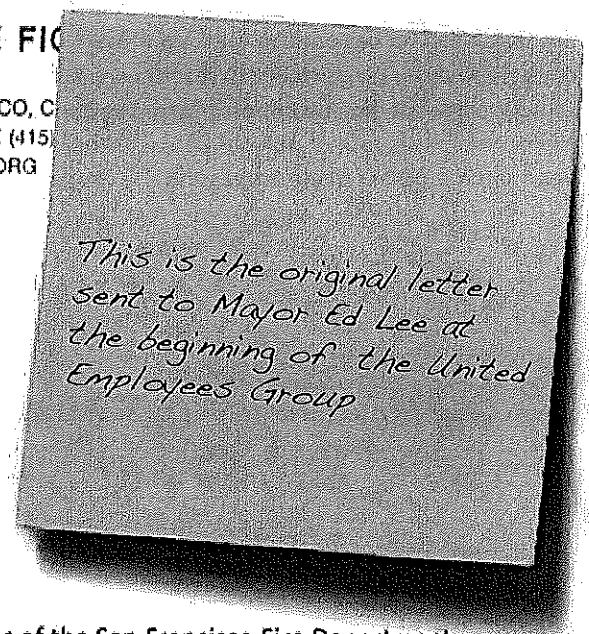 FI
CO, C
(415)
ORG
This is the original letter
sent to Mayor Ed Lee at
the beginning of the United
Employees Group
of the San Francisco Fire Department